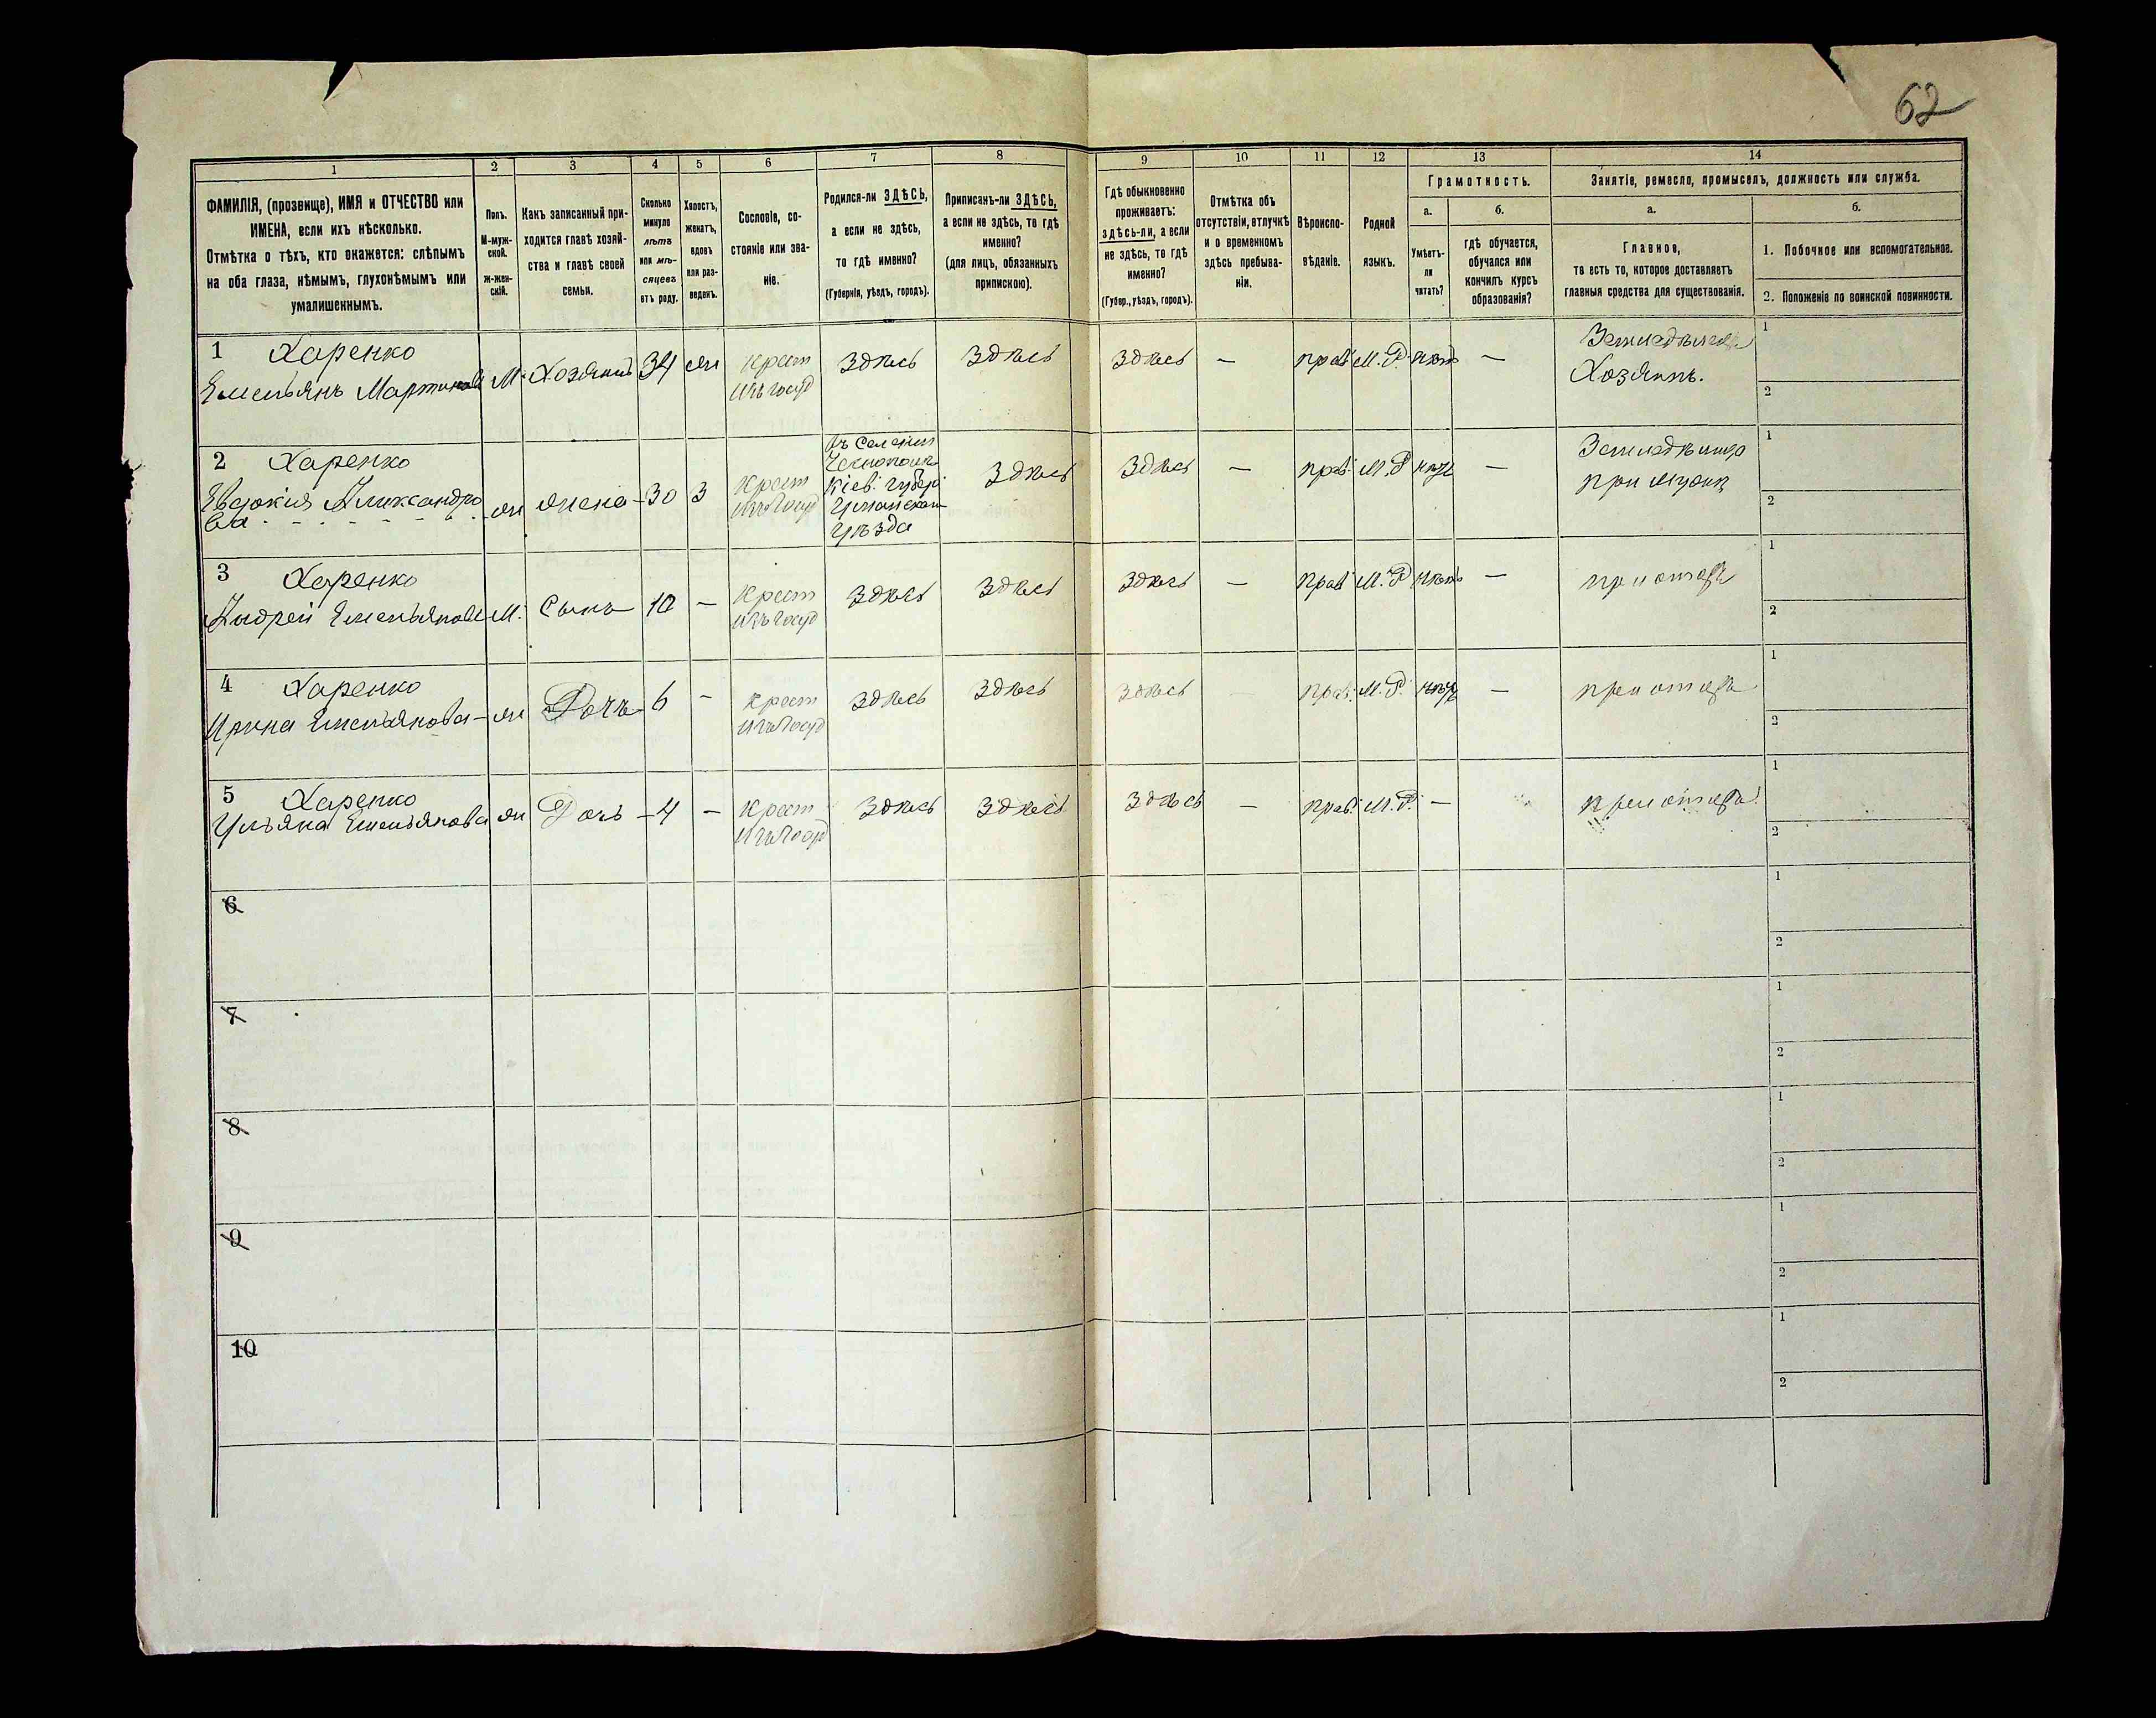 62
1 2 3 4 5 6 7 8 9 10 11 12 13 14
ФАМИЛІЯ, (прозвище), ИМЯ и ОТЧЕСТВО или
ИМЕНА, если ихъ нѣсколько.
Отмѣтка о тѣхъ, кто окажется: слѣпымъ
на оба глаза, нѣмымъ, глухонѣмымъ или
умалишеннымъ.
Полъ.
М-муж-
ской.
ж-жен-
скій.
Какъ записанный при-
ходится главѣ хозяй-
ства и главѣ своей
семьи.
Сколько
минуло
лѣтъ
или мѣ-
сяцевъ
отъ роду.
Холостъ,
женатъ,
вдовъ
или раз-
веденъ.
Сословіе, со-
стояніе или зва-
ніе.
Родился-ли ЗДѢСЬ,
а если не здѣсь,
то гдѣ именно?
(Губернія, уѣздъ, городъ).
Приписанъ-ли ЗДѢСЬ,
а если не здѣсь, то гдѣ
именно?
(для лицъ, обязанныхъ
припискою).
Гдѣ обыкновенно
проживаетъ:
здѣсь-ли, а если
не здѣсь, то гдѣ
именно?
(Губер., уѣздъ, городъ).
Отмѣтка объ
отсутствіи, отлучкѣ
и о временномъ
здѣсь пребыва-
ніи.
Вѣроиспо-
вѣданіе.
Родной
языкъ.
Грамотность.
а.
Умѣетъ-
ли
читать?
б.
гдѣ обучается,
обучался или
кончилъ курсъ
образованія?
Занятіе, ремесло, промыселъ, должность или служба.
а.
Главное,
то есть то, которое доставляетъ
главныя средства для существованія.
б.
1. Побочное или вспомогательное.
2. Положеніе по воинской повинности.
1 Харенко
Емельянъ Мартиновъ
М. Хозяинъ 34 ж
Крест
изъ госуд
здѣсь здѣсь здѣсь — прав. М.Р. нѣтъ —
Земледѣлецъ
Хозяинъ.
1
2
2 Харенко
Евдокия Александро
ва
ж жена 30 3
Крест
изъ госуд
Въ Селении
Кіев. губер
Уманскаго
Уѣзда
здѣсь здѣсь — прав. М.Р нѣтъ —
при мужѣ
1
2
3 Харенко
Андрей Емельяновъ
М. Сынъ 10 —
Крест
изъ госуд
здѣсь здѣсь здѣсь — прав. М.Р нѣтъ — при отцѣ
1
2
4 Харенко
Ирина Емельянова
ж Дочь 6 —
Крест
изъ госуд
здѣсь здѣсь здѣсь — прав. М.Р. нѣтъ — при отцѣ
1
2
5 Харенко
Ульяна Емельянова
ж Дочь 4 —
Крест
изъ госуд
здѣсь здѣсь здѣсь — прав. М.Р. — при отцѣ
1
2
6
1
2
7
1
2
8
1
2
9
1
2
10
1
2